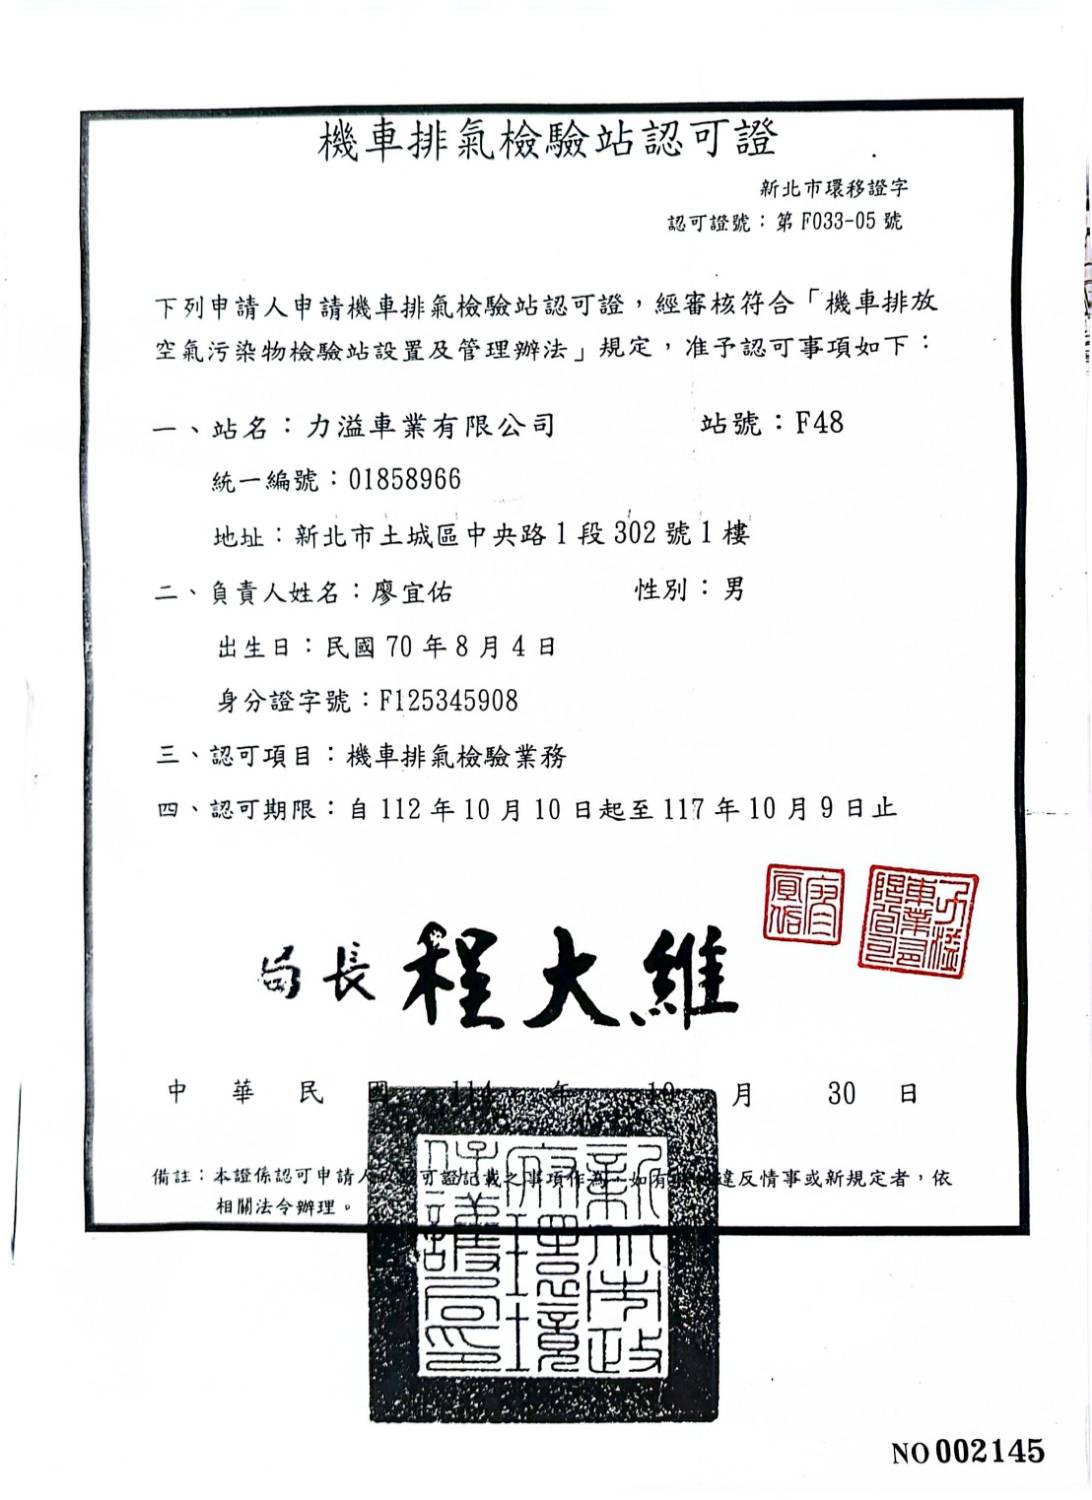 機車排氣檢驗站認可證
新北市環移證字
認可證號：第F033-05號
下列申請人申請機車排氣檢驗站認可證，經審核符合「機車排放
空氣污染物檢驗站設置及管理辦法」規定，准予認可事項如下：
一、站名：力溢車業有限公司 站號：F48
統一編號：01858966
地址：新北市土城區中央路1段302號1樓
二、負責人姓名：廖宜佑 性別：男
出生日：民國70年8月4日
身分證字號：F125345908
三、認可項目：機車排氣檢驗業務
四、認可期限：自112年10月10日起至117年10月9日止
局長 程大維
中華民國 114 年 10 月 30 日
備註：本證係認可申請人 可證記載之事項作為，如有 違反情事或新規定者，依
相關法令辦理。
新北市政府環境保護局印
NO 002145